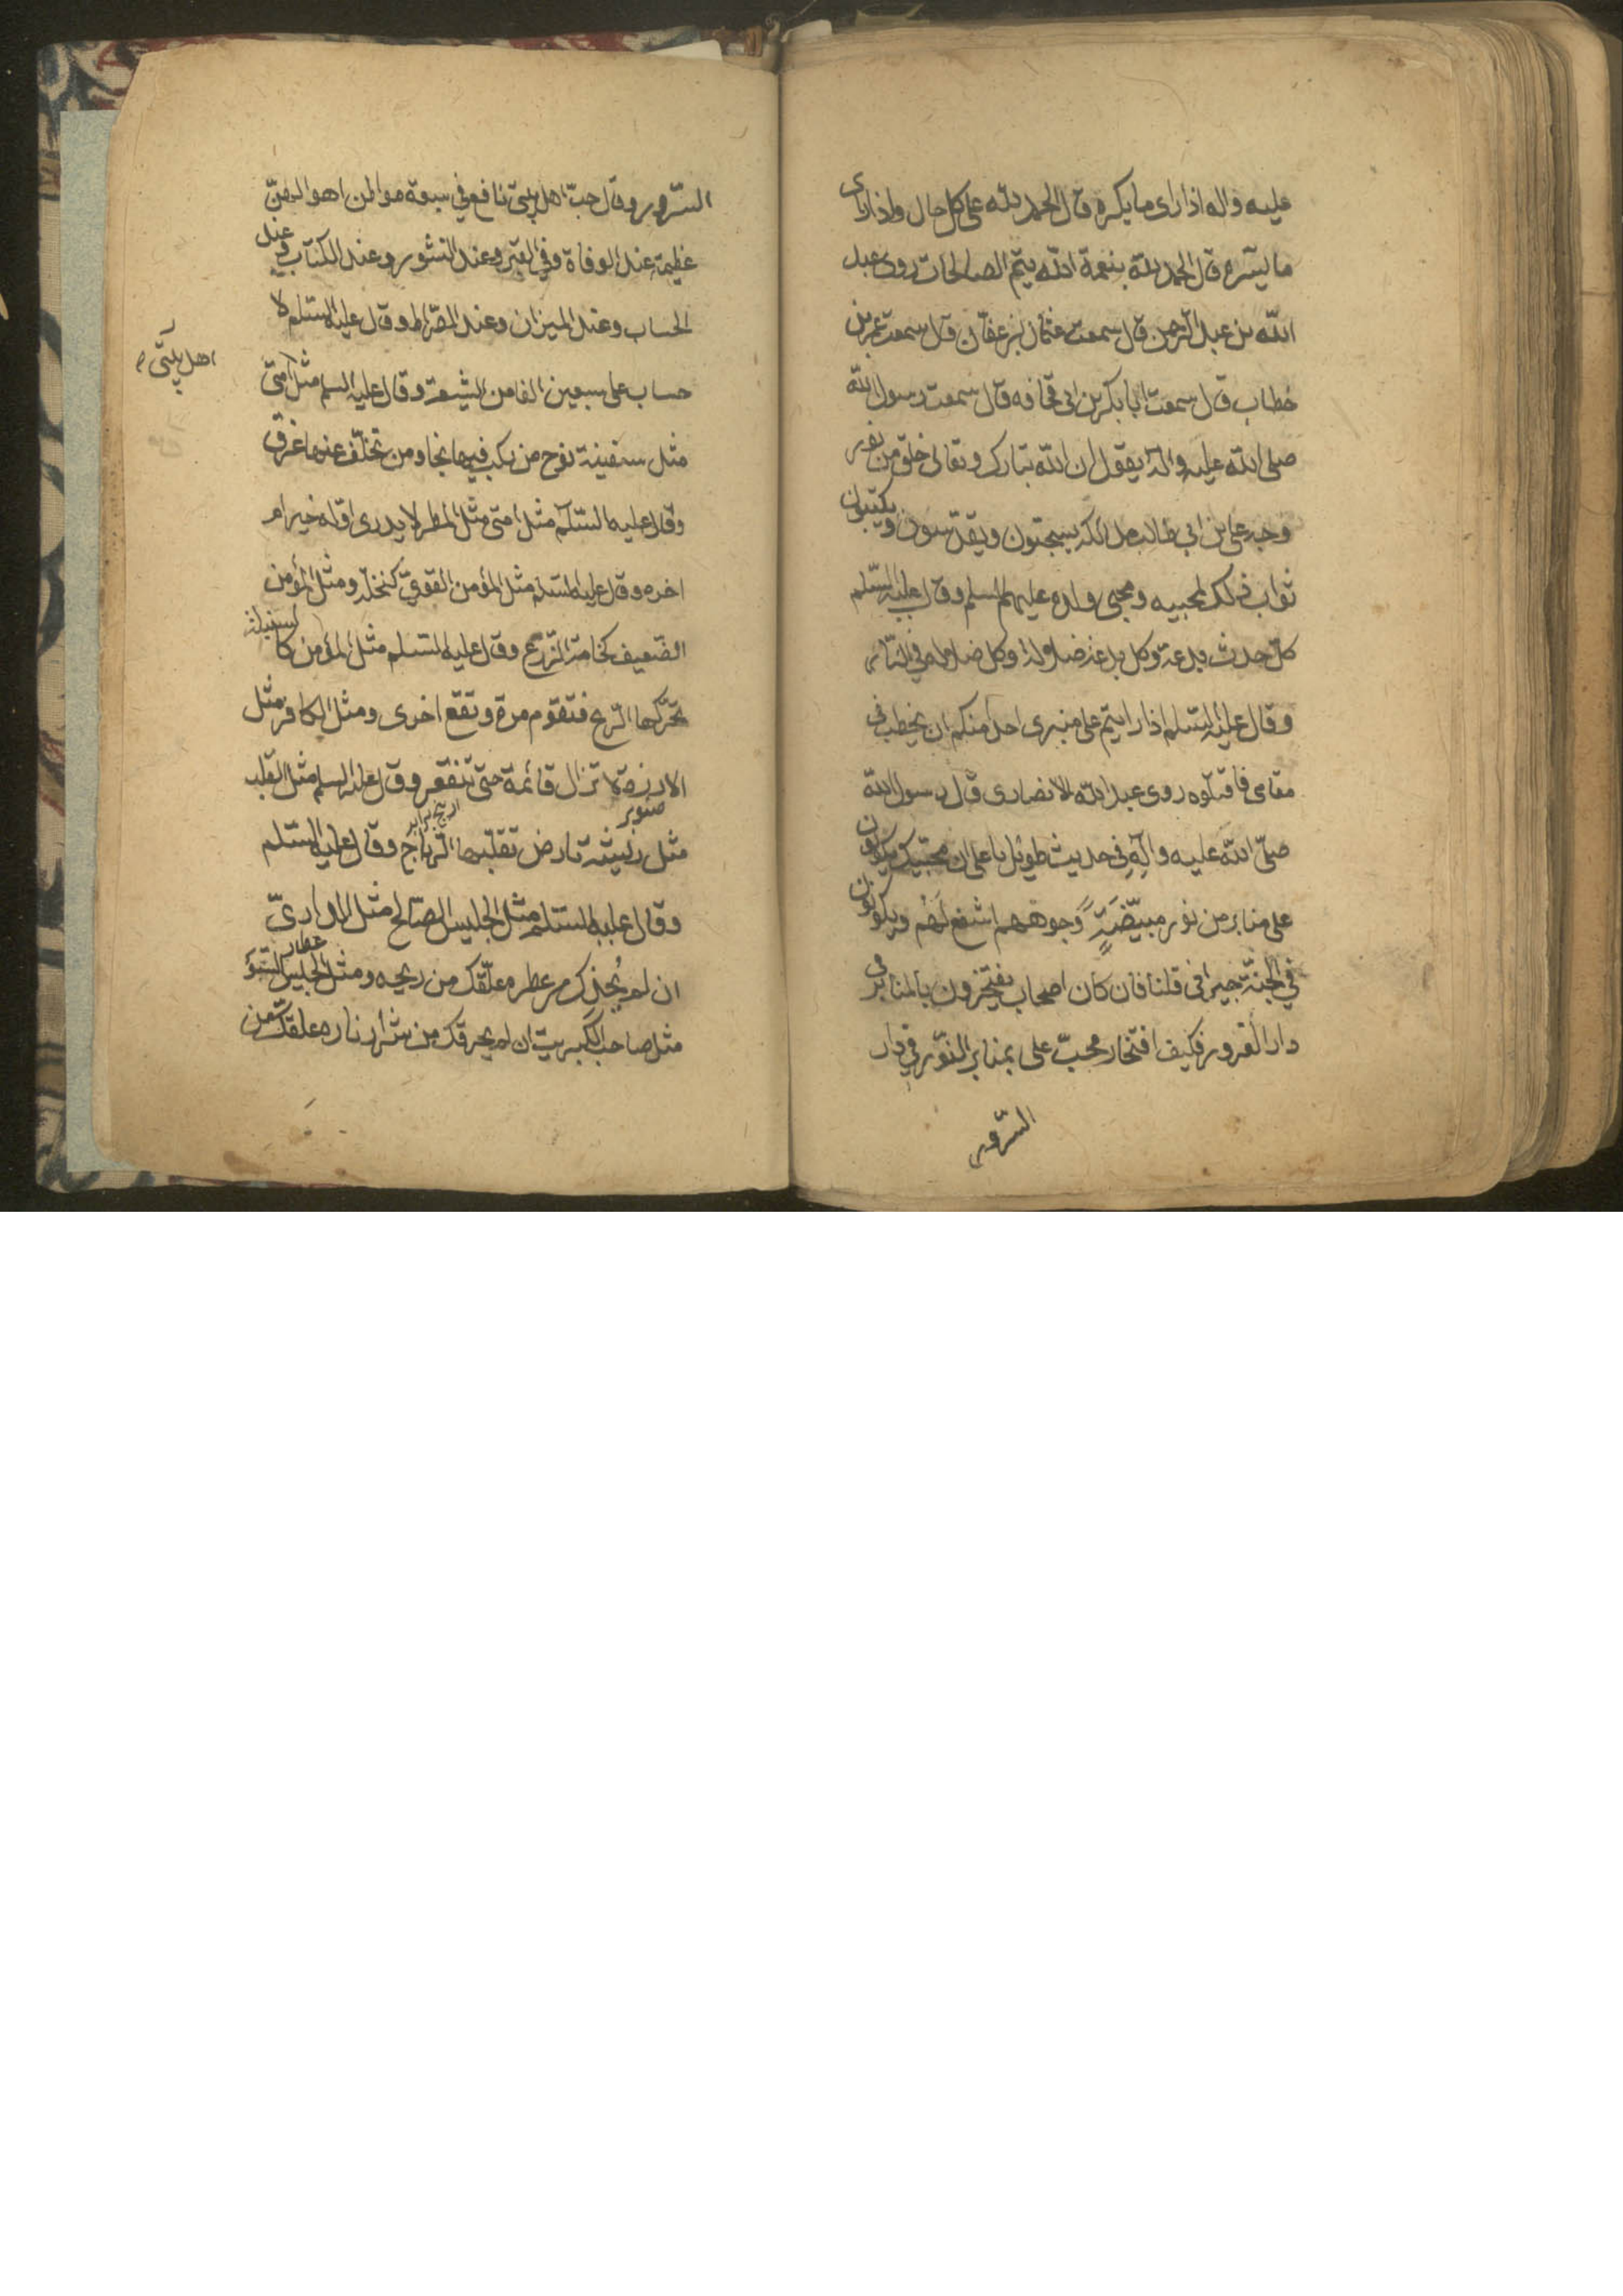 عليه واله اذا راى ما يكره قال الحمد لله على كل حال واذا راى
ما يسّره قال الحمد لله بنعمة الله يتم الصالحات روى عبد
الله بن عبد الرحمن قال سمعت عثمان بن عفان قال سمعت عمر بن
خطاب قال سمعت ابا بكر بن ابى قحافه قال سمعت رسول الله
صلى الله عليه واله يقول ان الله تبارك وتعالى خلق من نور
وجه على بن ابي طالب ملائكة يسبحون ويقدّسون ويكتبون
ثواب ذلك لمحبيه ومحبى ولده عليهم السلم وقال عليه السّلم
كلّ حدث بدعة وكل بدعة ضلالة وكل ضلالة في النّار
وقال عليه السّلم اذا رايتم على منبرى احد منكم ان يخطب فى
مقامى فاقتلوه روى عبد الله الانصارى قال رسول الله
صلّى الله عليه وآلِهِ في حديث طويل يا على ان محبّيك يكونون
على منابر من نور مبيّضةً وجوههم اشفع لَهُم ويكونون
في الجنّة جيرانى قلنا فان كان اصحاب يفتخرون بالمنابر فى
دار الغرور فكيف افتخار محبّ على بمنابر النّور في دار
السّرور
السّرور وقال حبّ اهل بيتى نافع في سبعة مواطن اهوالهنّ
عظيمة عند الوفاة وفي القبر وعند النشور وعند الكتاب وعند
الحساب وعند الميزان وعند الصّراط وقال عليه السّلم لا
حساب على سبعين الفا من الشيعة وقال عليه السلم مثل امتى
اهل بيتى
مثل سفينة نوح من ركب فيها نجا ومن تخلّف عنها غرق
وقال عليه السّلم مثل امتى مثل المطر لا يدرى اوّله خير ام
اخره وقال عليه السّلم مثل المؤمن القوىّ كنخلة ومثل المؤمن
الضّعيف كخامة الزّرع وقال عليه السّلم مثل المؤمن كالسنبلة
تحرّكها الرّيح فتقوم مرة وتقع اخرى ومثل الكافر مثل
الارزة لا تزال قائمة حتى تنقعر وقال عليه السلم مثل القلب
صنوبر
مثل ريشة بارض تقلّبها الرّياح وقال عليه السّلم
وقال عليه السّلم مثل الجليس الصّالح مثل الدّارىّ
عطار
ان لم يُجذك من عطره علّقك من ريحه ومثل الجليس السّوء
مثل صاحب الكبريت ان لم يحرقك من شرار ناره علقك من